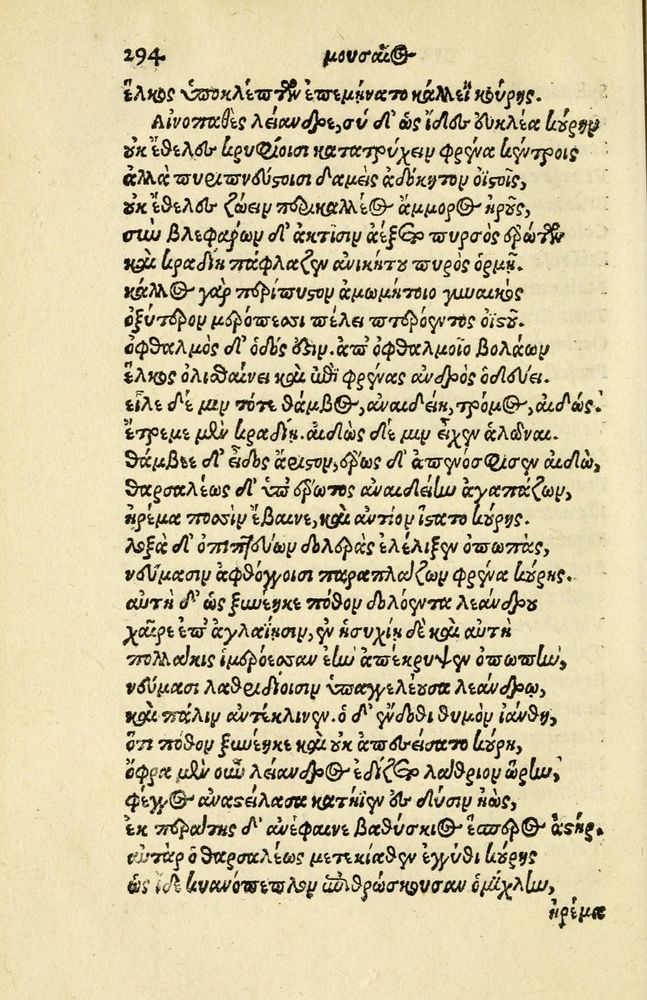 294 μουσαῖος
ἕλκος ὑποκλέπτων ἐπεμήνατο κάλλεϊ κούρης.
Αἰνοπαθὲς λέιανδρε, σὺ δ' ὡς ἴδες ἐυκλέα κόυρην
ὐκ ἔθελες κρυφίοισι κατατρύχειν φρένα κέντροις
ἀλλὰ πυριπνεύστοισι δαμεὶς ἀδόκητον ὀϊστοῖς,
ὐκ ἔθελες ζώειν περικαλλέος ἄμμορος κούρης,
σὺν βλεφάρων δ' ἀκτῖσιν ἀέξετο πυρσὸς ἐρώτων
καὶ κραδίη πάφλαζεν ἀνικήτου πυρὸς ὁρμῇ.
κάλλος γὰρ περίπυστον ἀμωμήτοιο γυναικὸς
ὀξύτερον μερόπεσσι πέλει πτερόεντος ὀϊστοῦ.
ὀφθαλμὸς δ' ὁδός ἐστιν. ἀπ' ὀφθαλμοῖο βολάων
ἕλκος ὀλισθαίνει καὶ ἐπὶ φρένας ἀνδρὸς ὁδεύει.
εἷλε δέ μιν τότε θάμβος, ἀναιδείη, τρόμος, αἰδώς.
ἔτρεμε μὲν κραδίη. αἰδὼς δέ μιν εἶχεν ἁλῶναι.
θάμβεε δ' εἶδος ἄριστον, ἔρως δ' ἀπενόσφισεν αἰδῶ,
θαρσαλέως δ' ὑπ' ἔρωτος ἀναιδείην ἀγαπάζων,
ἠρέμα ποσσὶν ἔβαινε, καὶ ἀντίον ἵστατο κούρης.
λοξὰ δ' ὀπιπτεύων δολερὰς ἐλέλιξεν ὀπωπὰς,
νεύμασιν ἀφθόγγοισι παραπλάζων φρένα κούρης.
αὐτὴ δ' ὡς ξυνέηκε πόθον δολόεντα λεάνδρου
χαῖρε ἐπ' ἀγλαΐῃσιν, ἐν ἡσυχίῃ δὲ καὶ αὐτὴ
πολλάκις ἱμερόεσσαν ἑὴν ἀπέκρυψεν ὀπωπὴν,
νεύμασι λαθριδίοισιν ὑπαγγελέουσα λεάνδρῳ,
καὶ πάλιν ἀντέκλινεν. ὁ δ' ἔνδοθι θυμὸν ἰάνθη,
ὅτι πόθον ξυνέηκε καὶ οὐκ ἀπεσείσατο κούρη,
ὄφρα μὲν οὖν λείανδρος ἐδίζετο λάθριον ὥρην,
φέγγος ἀναστείλασα κατήϊεν ἐς δύσιν ἠὼς,
ἐκ περάτης δ' ἀνέφαινε βαθύσκιος ἕσπερος ἀστήρ.
αὐτὰρ ὁ θαρσαλέως μετεκίαθεν ἐγγύθι κούρης
ὡς ἴδε κυανόπεπλον ἐπιθρώσκουσαν ὁμίχλην,
ἠρέμα